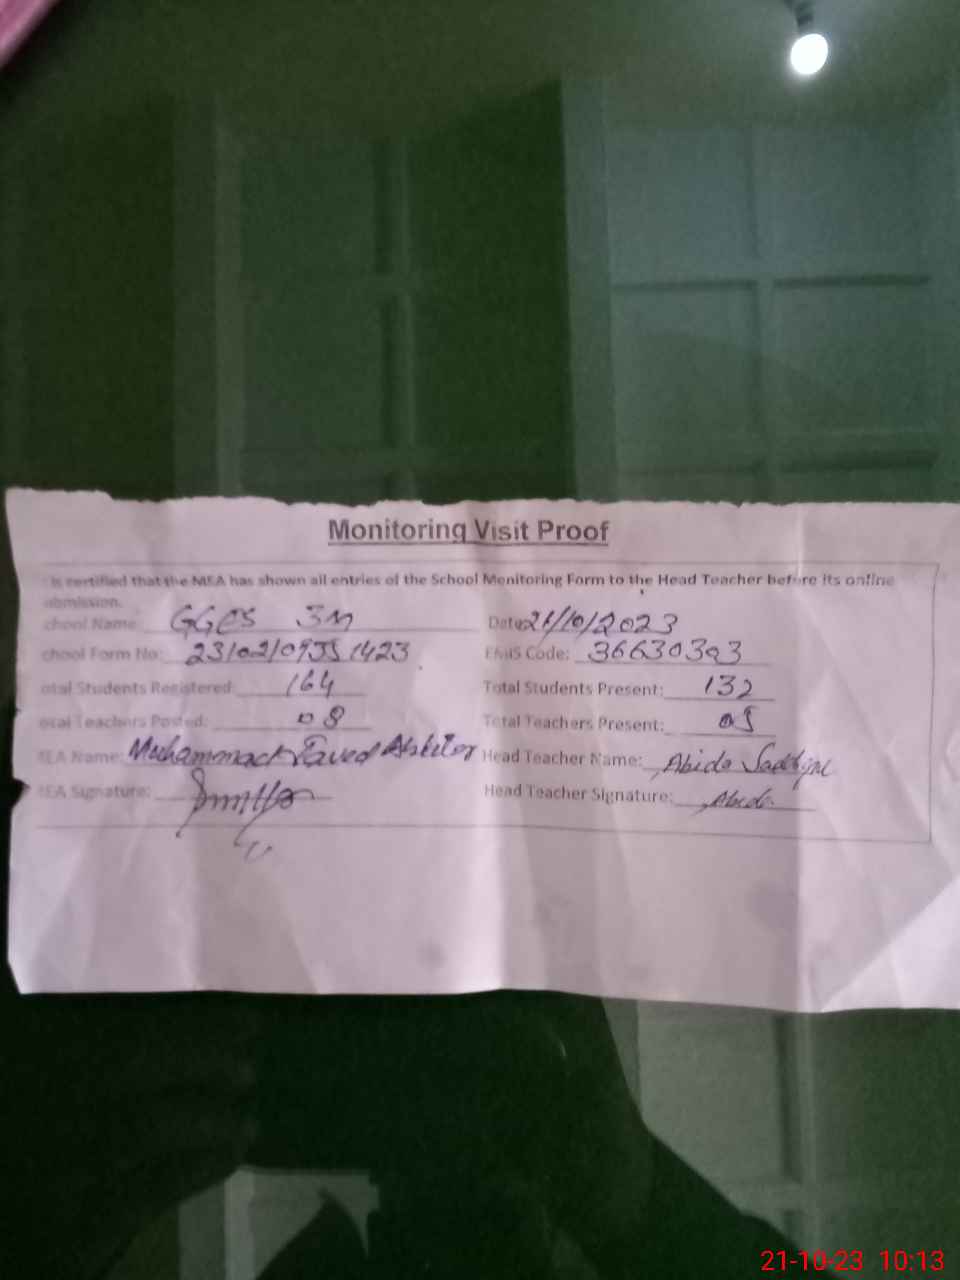 Monitoring Visit Proof
is certified that the MEA has shown all entries of the School Monitoring Form to the Head Teacher before its online
bmission.
chool Name: GGES 3M Date: 21/10/2023
chool Form No: EMIS Code: 36630393
otal Students Registered: 164 Total Students Present: 132
otal Teachers Posted: 08 Total Teachers Present: 05
MEA Name: Muhammad Javed Head Teacher Name: Abida
MEA Signature: Head Teacher Signature: Abida
21-10-23 10:13